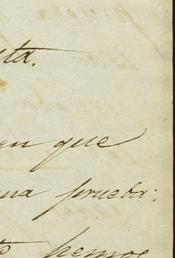 ta.
en que
una prueba:
te hemos